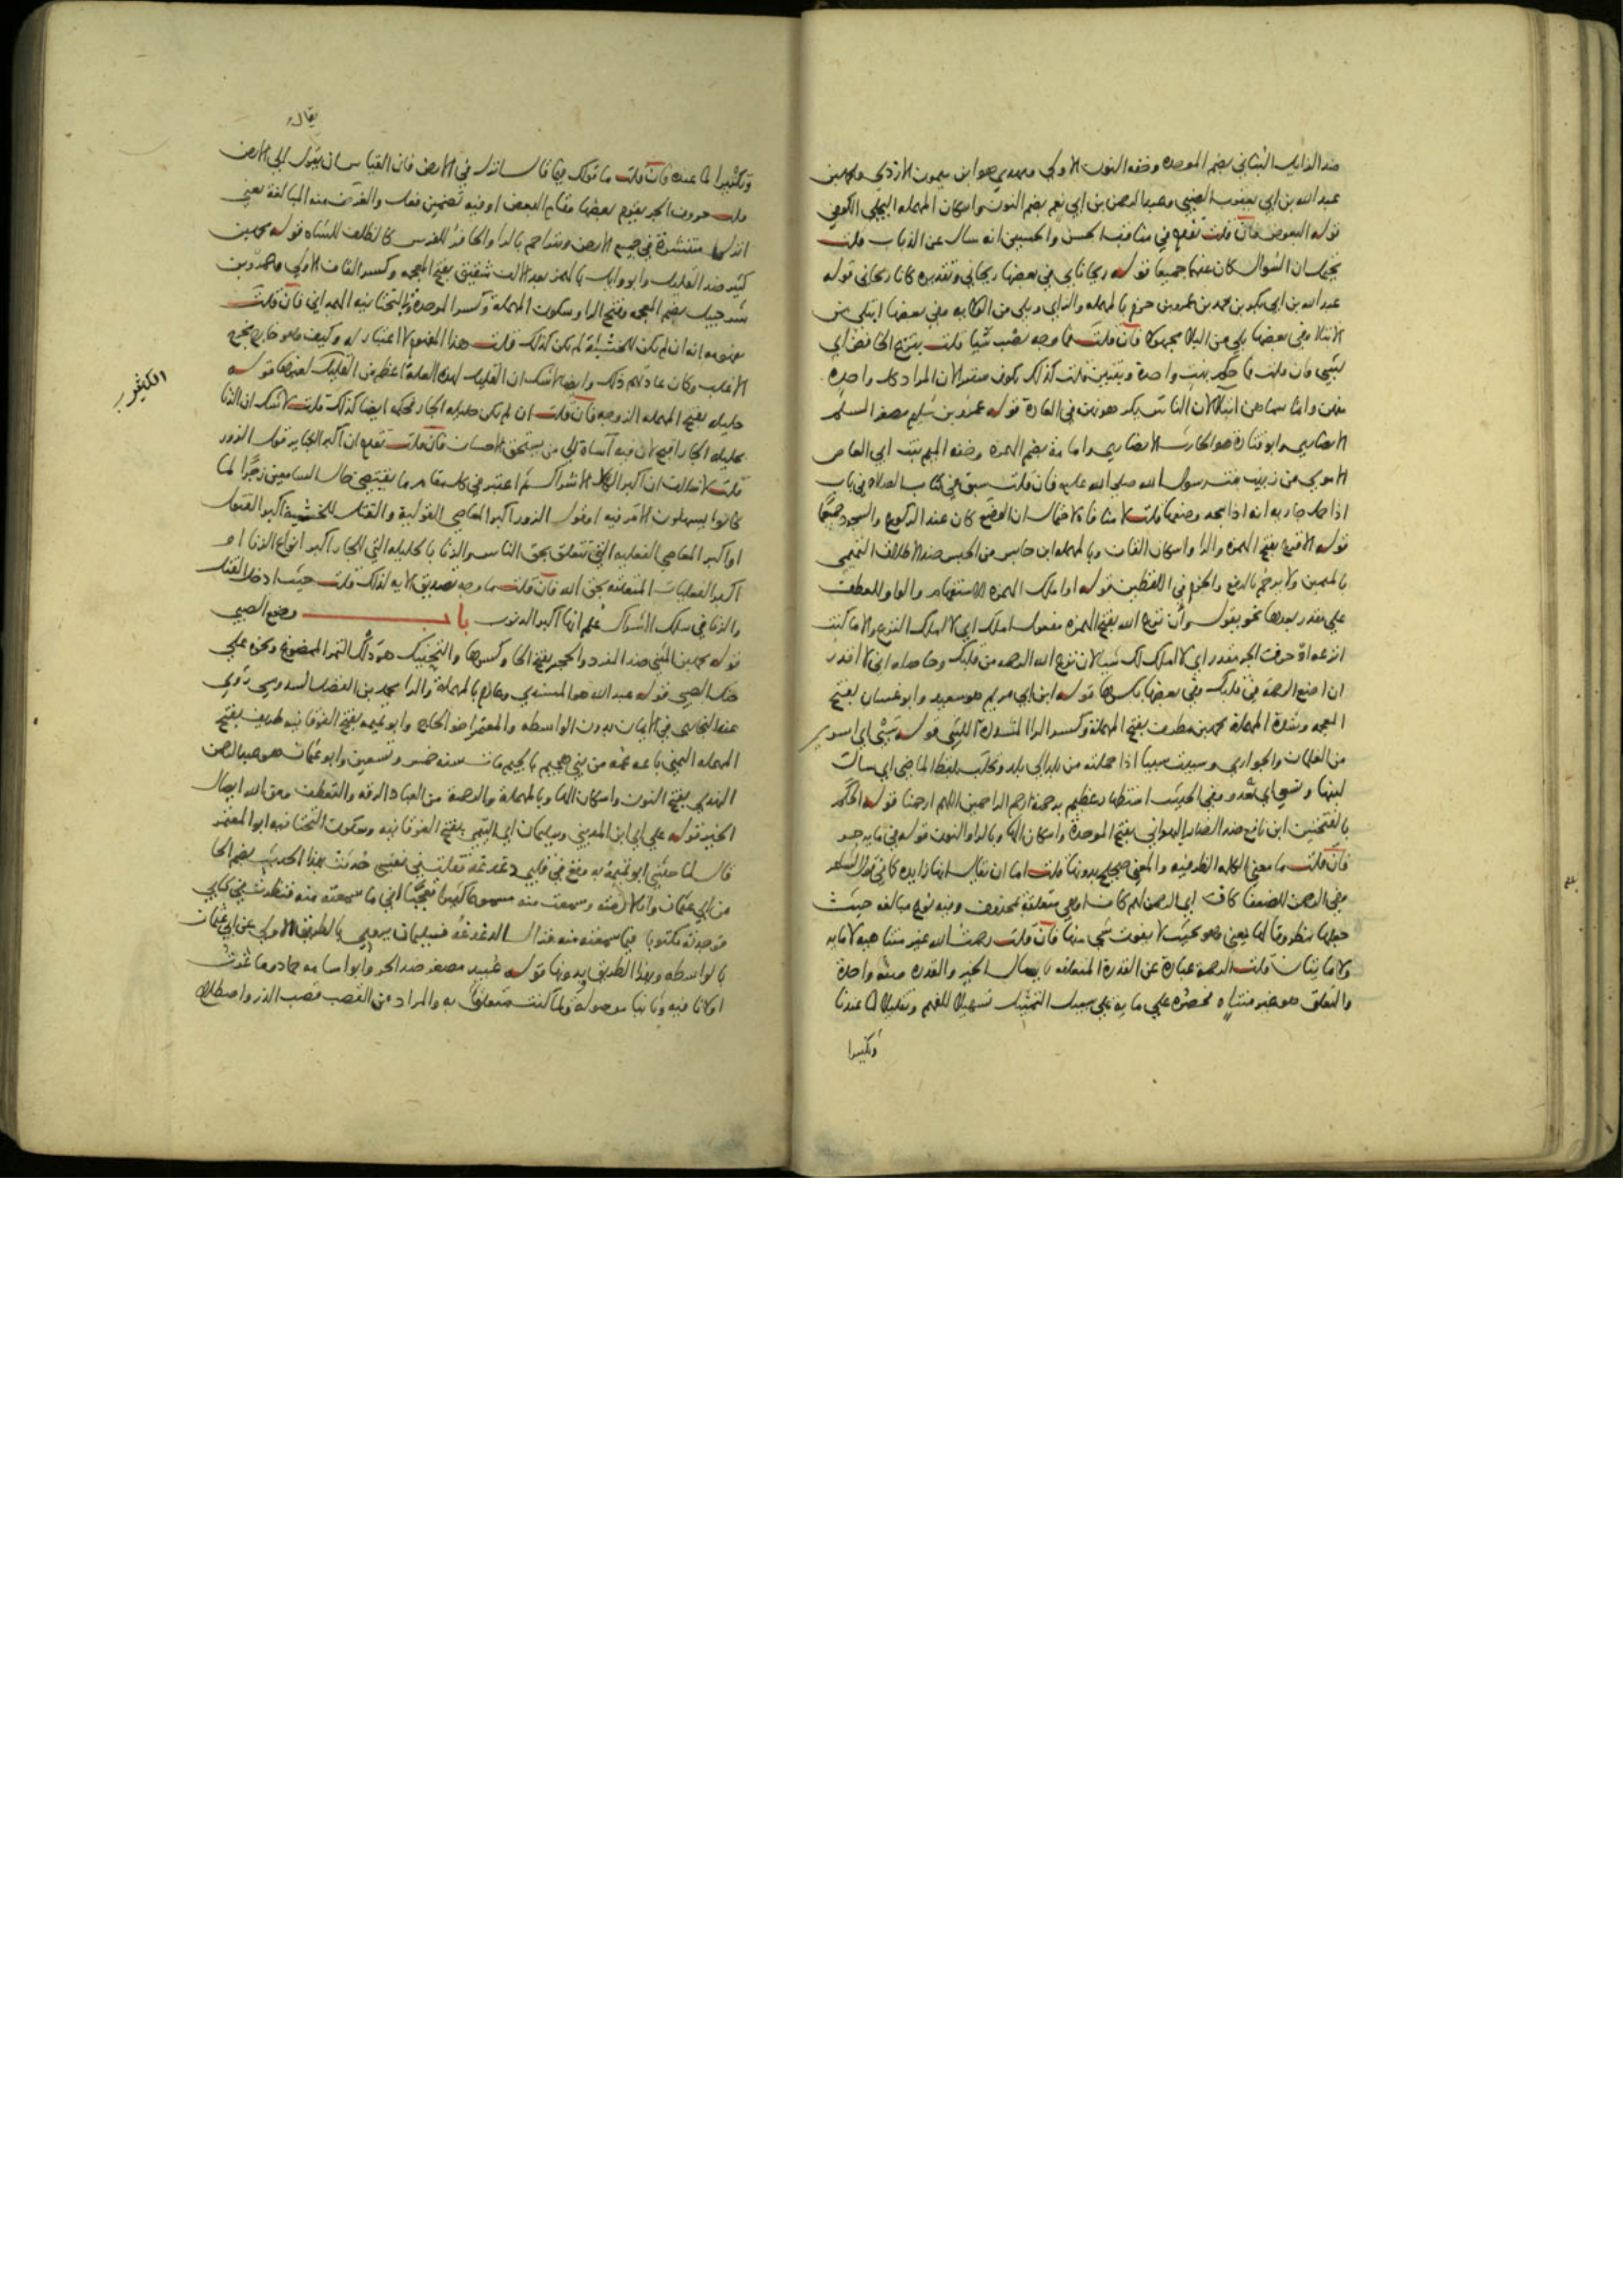 ضد الزايل البناني بضم الموحده وخفه النون الاولي ومهدي هو ابن ميمون الازدي ومحمد بن
عبد الله بن ابي يعقوب الضبي وعبد الرحمن بن ابي نعم بضم النون واسكان المهمله البجلي الكوفي
قوله البعوض فان قلت تقدم في مناقب الحسن والحسين انه سال عن الذباب قلت
يحتمل ان السوال كان عنهما جميعا قوله ريحانتاي في بعضها ريحاني وتقديره كانا ريحاني قوله
عبد الله بن ابي بكر بن محمد بن عمرو بن حزم بالمهمله والزاي وبلي من الولاية وفي بعضها ابتلي من
الابتلا وفي بعضها بلي من البلا مجهولا فان قلت فما وجه نصب شيا قلت بنزع الخافض اي
بشي فان قلت ما حكم بنت واحدة وبنتين قلت كذلك يكون سترا لان المراد كل واحده
منهن وانما سماهن ابتلا لان الناس يكرهونهن في العادة قوله عمرو بن سليم مصغر السلم
الانصاري وابو قتادة هو الحارث الانصاري وامامة بضم الهمزه وخفه الميم بنت ابي العاص
الاموي من زينب بنت رسول الله صلي الله عليه فان قلت سبق في كتاب الصلاه في باب
اذا حمل جاريه انه اذا سجد وضعها قلت لا منافاة لاحتمال ان الوضع كان عند الركوع والسجود جميعا
قوله الاقرع بفتح الهمزه والرا واسكان القاف وبالمهمله ابن حابس من الحبس ضد الاطلاق التميمي
بالميمين ولا يرحم بالرفع والجزم في اللفظين قوله اوا ملك الهمزه للاستفهام والواو للعطف
علي مقدر بعدها نحو يقول وان نزع الله بفتح الهمزه مفعول املك اي لا املك النزع والا ما كنت
انزعه او حرف الجر مقدر اي لا املك لك شيا لان نزع الله الرحمه من قلبك وحاصله اني لا اقدر
ان اضع الرحمة في قلبك وفي بعضها بكسرها قوله ابن ابي مريم هو سعيد وابو غسان بفتح
المعجمه وشدة المهملة محمد بن مطرف بفتح المهملة وكسر الرا المشددة الليثي قوله سبي اي اسير
من الغلمان والجواري وسبيت سبيا اذا حملته من بلد الي بلد وتحلب بلفظ الماضي اي سالت
لبنها وتسعي اي تعدو وفي الحديث استظهار عظيم برحمة ارحم الراحمين اللهم ارحمنا قوله الحكم
بالفتحتين ابن نافع ضد الضار البهراني بفتح الموحدة واسكان الها وبالراء والنون قوله في مايه جزء
فان قلت ما معني الكلمه الظرفيه والمعني صحيح بدونها قلت اما ان يقال انها زايده كما في قول الشاعر
وفي الرحمن للضعفا كاف اي الرحمن لهم كاف او هي متعلقة بمحذوف وفيه نوع مبالغه حيث
جعلها مظروفا لها يعني هو بحيث لا يفوت شي منها فان قلت رحمت الله غير متناهيه لا مايه
ولا مايتان قلت الرحمة عبارة عن القدرة المتعلقه بايصال الخير والقدره صفة واحدة
والتعلق هو غير متناه فحصره علي مايه علي سبيل التمثيل تسهيلا للفهم وتقليلا لما عندنا
وتكثيرا
يقال
وتكثيرا لما عنده فان قلت ما قولك فيما قال انزل في الارض فان القياس ان يقول الي الارض
قلت حروف الجر يقوم بعضها مقام البعض او فيه تضمين فعل والغرض منه المبالغة يعني
انزلها منتشرة في جميع الارض ويتراحم بالرا والحافر للفرس كالظلف للشاه قوله محمد بن
كثير ضد القليل وابو وايل بالهمز بعد الالف شقيق بفتح المعجمه وكسر القاف الاولي وعمرو بن
شرحبيل بضم المعجمه وفتح الرا وسكون المهملة وكسر الموحدة وبالتحتانيه الهمداني فان قلت
مفهومه انه ان لم يكن للخشية لم يكن كذلك قلت هذا المفهوم لا اعتبار له وكيف وهو خارج مخرج
الاغلب وكان عادتهم ذلك وايضا لا شك ان القتل لهذه العلة اعظم من القتل لغيرها قوله
حليله بفتح المهمله الزوجه فان قلت ان لم يكن حليله الجار فحكمه ايضا كذلك قلت لا شك ان الزنا
الكثير
بحليله الجار اقبح لان فيه اساة الي من يستحق الاحسان فان قلت تقدم ان اكبر الكباير قول الزور
قلت لا خلاف ان اكبر الكل الاشراك ثم اعتبر في كل مقام ما يقتضي حال السامعين زجرا لما
كانوا يسهلون الامر فيه او قول الزور اكبر المعاصي القولية والقتل للخشية اكبر القتول
او اكبر المعاصي الفعليه التي تتعلق بحق الناس والزنا بالحليله التي للجار اكبر انواع الزنا او
اكبر الفعليات المتعلقه بحق الله فان قلت ما وجه تصديق الايه لذلك قلت حيث ادخل القتل
والزنا في سلك الاشراك علم انها اكبر الذنوب باب وضع الصبي
قوله محمد بن المثني ضد المفرد والحجر بفتح الحا وكسرها والتحنيك هو دلك التمر الممضوغ ونحوه علي
حنك الصبي قوله عبد الله هو المسندي وعارم بالمهملة والرا محمد بن الفضل السدوسي روي
عنه البخاري في الايمان بدون الواسطه والمعتمر اخو الحاج وابو تميمه بفتح الفوقانيه طريف بفتح
المهمله الهجيمي باعه عمه من بني هجيم بالجيم مات سنه خمس وتسعين وابو عثمان هو عبد الرحمن
النهدي بفتح النون واسكان الها وبالمهملة والرحمة من العباد الرقه والتعطف ومن الله ايصال
الخير قوله علي اي ابن المديني وسليمان اي التيمي بفتح الفوقانيه وسكون التحتانيه ابو المعتمر
قال لما حدثني ابو تميمة به وقع في قلبي دغدغة فقلت في نفسي حدثت بهذا الحديث بضم الحا
من ابي عثمان وانا لازمته وسمعت منه مسموعا كثيرا فعجبا اني ما سمعته منه فنظرت في كتابي
فوجدته مكتوبا فيما سمعته منه فزال الدغدغة فسليمان يروي بالطريق الاولي عن ابي عثمان
بالواسطه وبهذا الطريق بدونها قوله عبيد مصغر ضد الحر وابو اسامه حماد وما غرت
اولا نا فيه وثانيا موصولة ولما كنت متعلق به والمراد من القصب قصب الدر واصطلاح